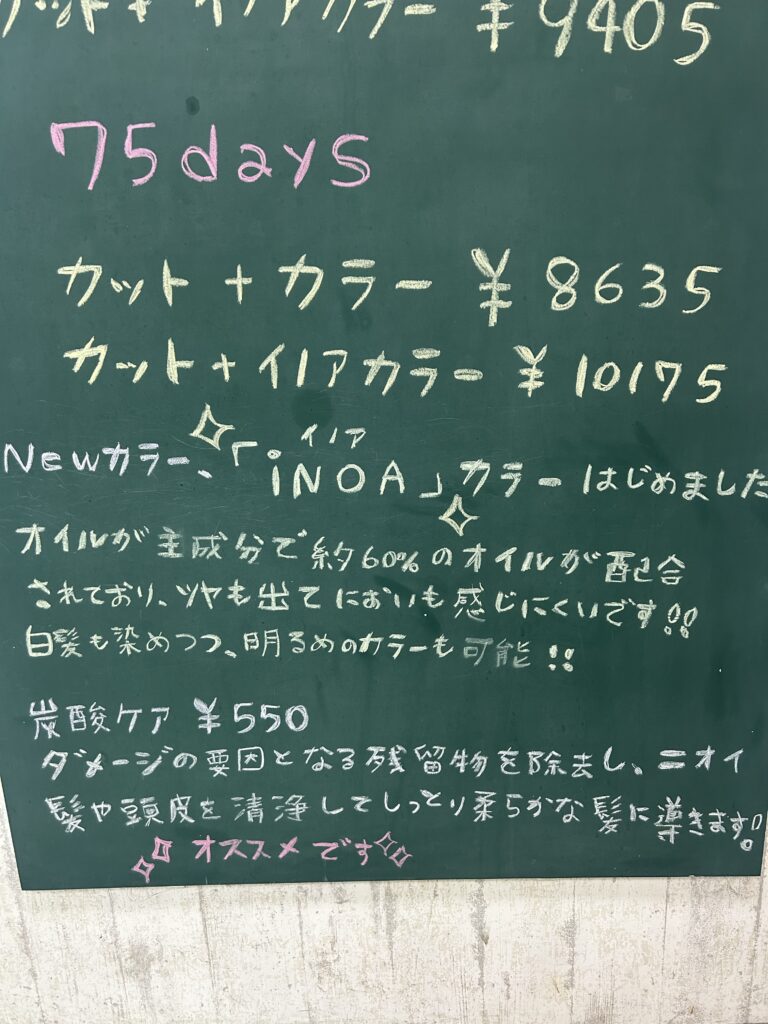 カット+イノアカラー ¥9405
75days
カット+カラー ¥8635
カット+イノアカラー ¥10175
イノア
Newカラー、「iNOA」カラーはじめました
オイルが主成分で約60%のオイルが配合
されており、ツヤも出てにおいも感じにくいです!!
白髪も染めつつ、明るめのカラーも可能!!
炭酸ケア ¥550
ダメージの要因となる残留物を除去し、ニオイ
髪や頭皮を清浄してしっとり柔らかな髪に導きます!
オススメです